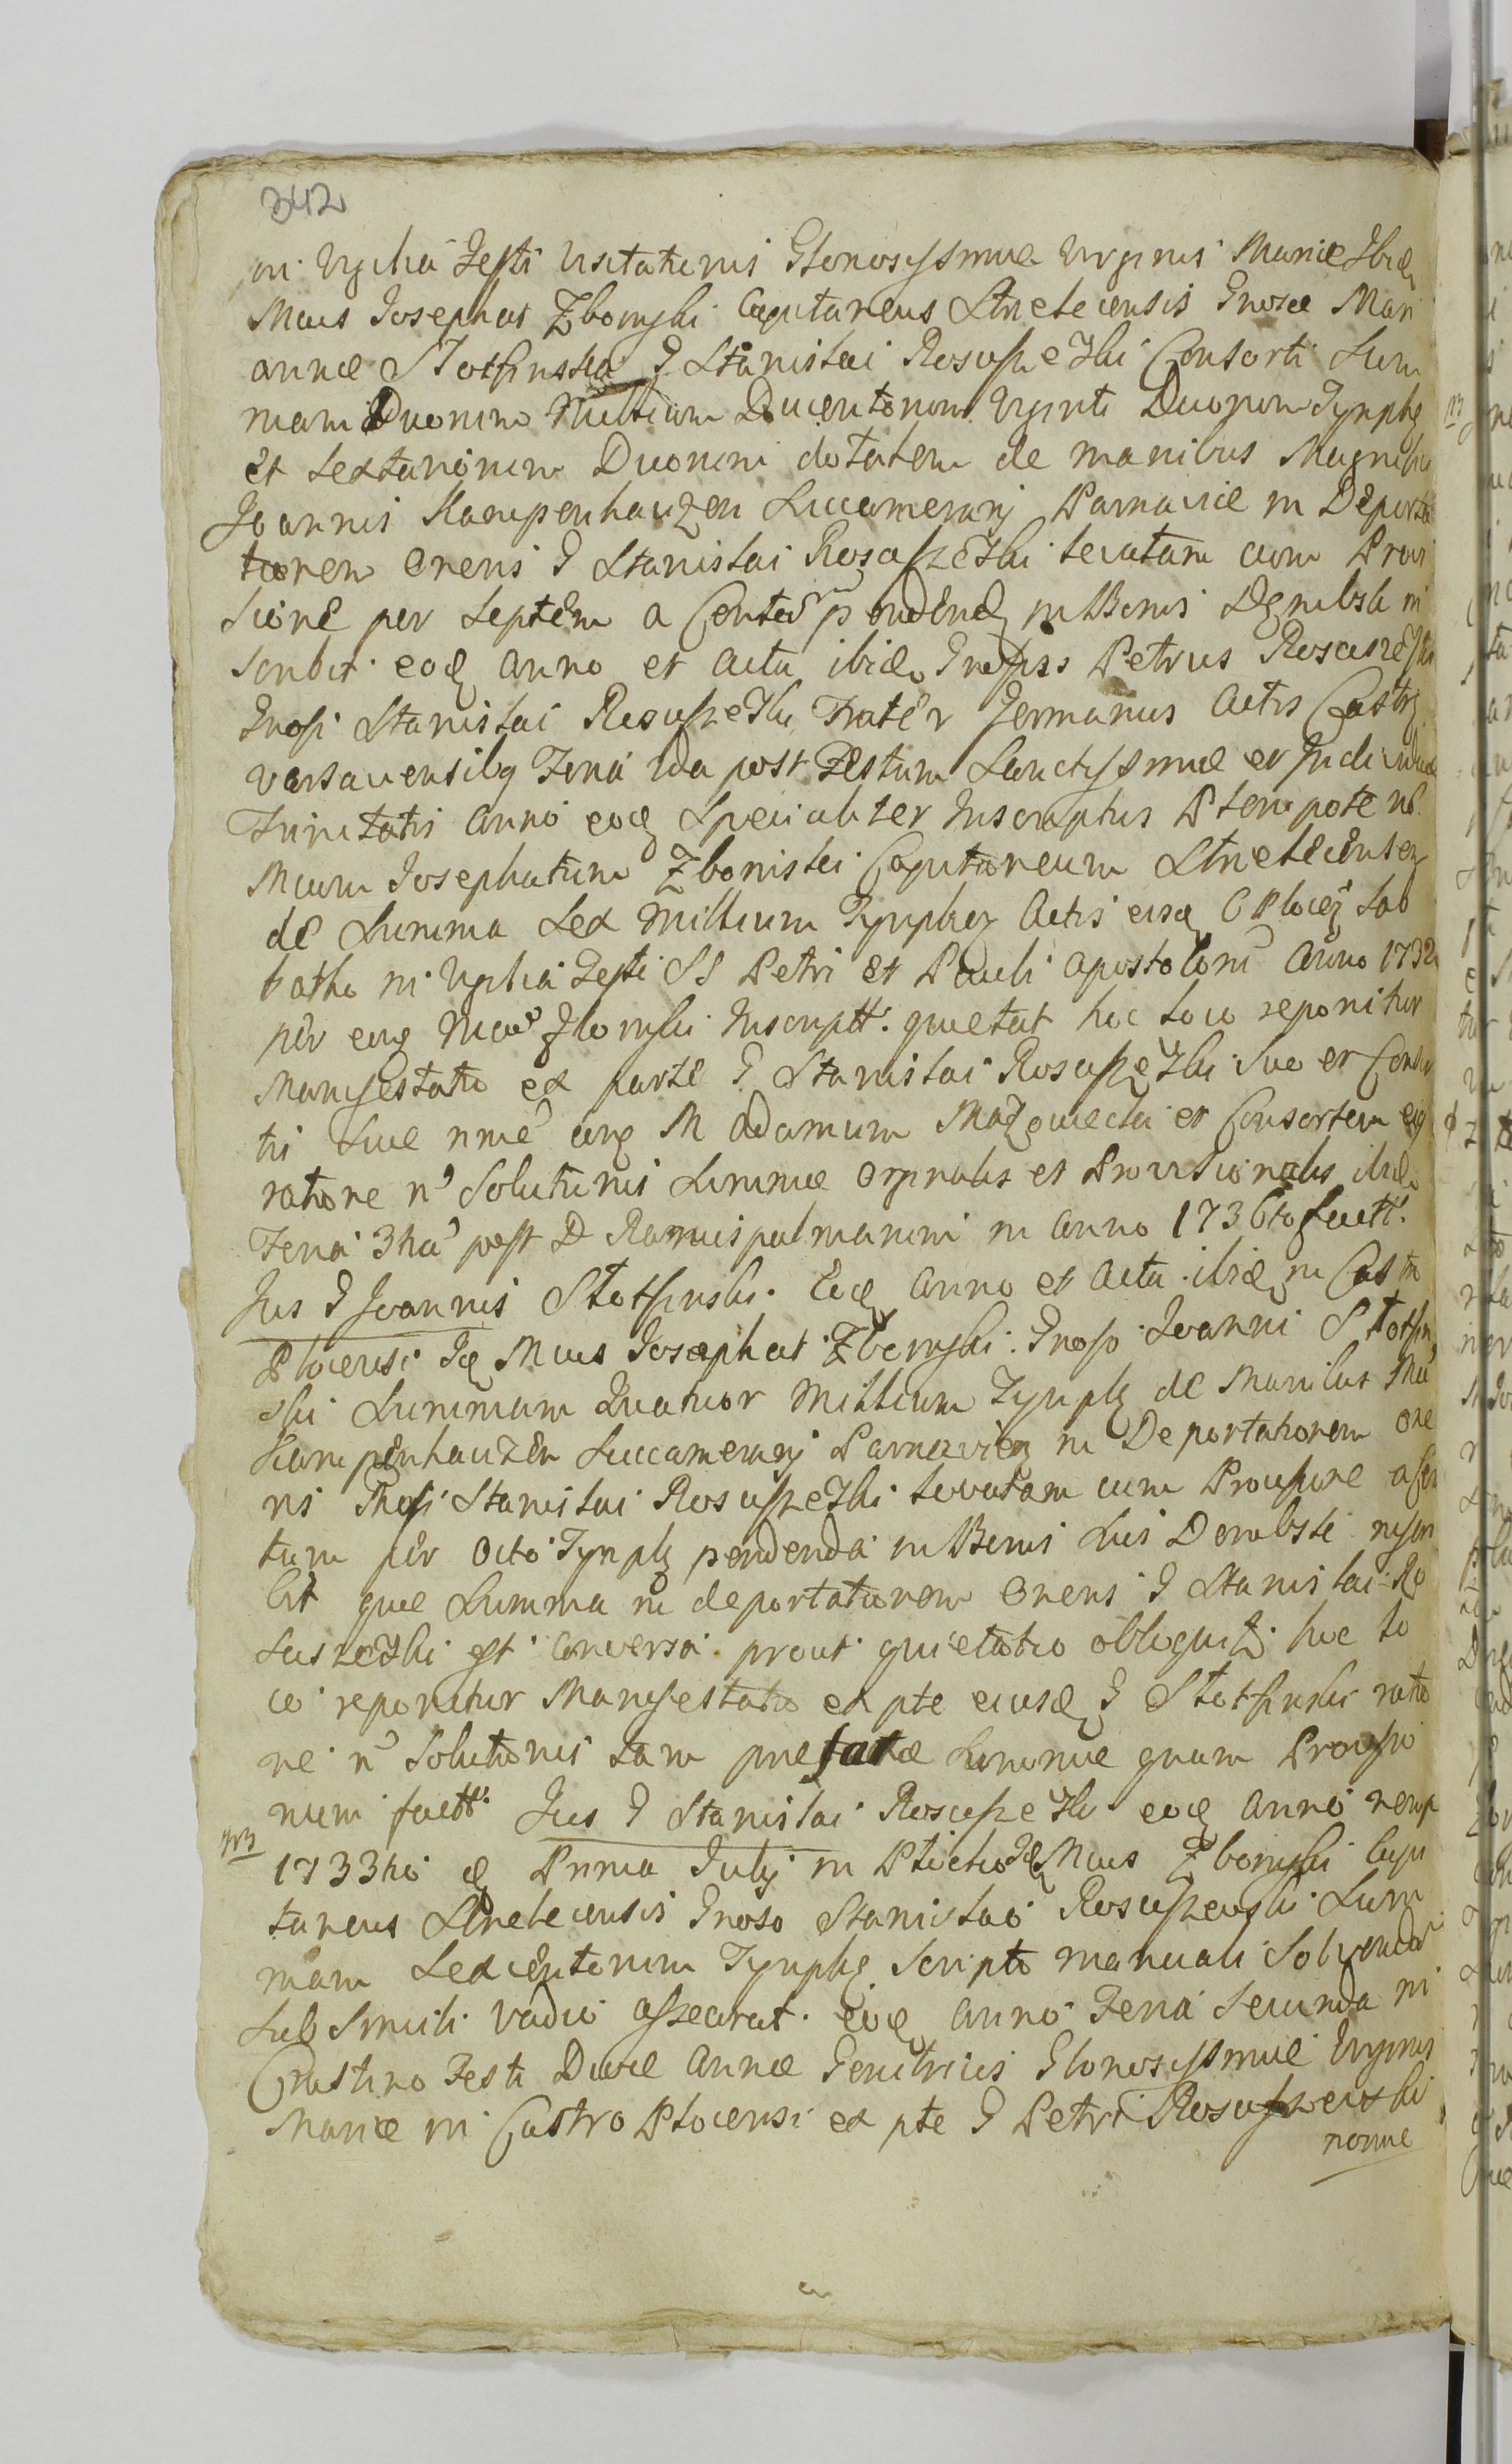 342
in Vigilia Festi Visitationis Gloriosissimae Virginis Mariae Ibid
Mcus Josephat Zboinski Capitaneus Strzelecensis Gnosae Mari
annae Slotfinska G Stanislai Rosciszewski Consorti Sum
mam Duorum Millium Ducentorum Viginti Duorum Tynph
et Sextariorum Duorum dotalem de manibus Magnifici
Joannis Kampenhauzen Succamerarij Parnaviae in Deporta
tionem oneris G Stanislai Rosciszewski levatam cum Provi
sione per Septem a Centum pendend in Bonis Dembsk in
scribit eod anno et actu ibid Gnosus Petrus Rosciszewski
Gnosi Stanislai Rosciszewski Frater Germanus Actis Castr
Varsaviensibq Feria 2da post Festum Sanctissimae et Individuae
Trinitatis anno eod Specialiter Inscriptus Plenipotens
Mcum Josephatum Zboinski Capitaneum Strzelecensem
de Summa Sex Millium Tynphg Actis eisd C Plocen Sab
batho in Vigilia Festi SS Petri et Pauli Apostolorum Anno 1732
per eung Mcum Zboinski Inscriptt. quietat hoc loco reponitur
Manifestatio ex parte G Stanislai Rosciszewski Suo et Conso
tis Suae nme cong M Adamum Mazowiecki et Consortem eig
ratione non Solutionis Summae orginalis et Provisionalis ibid
Feria 3tia post D Ramispalmarum in Anno 1736to factt.
Jus G Joannis Slotfinski. Eod Anno et Actu ibid in Castro
Plocensi Id Mcus Josephat Zboinski Gnoso Joanni Slotfin
ski Summam Quatuor Millium Tynph de Manibus Mci
Kampenhauzen Succamerarij Parnavien in Deportationem one
ris Gnosi Stanislai Rosciszewski levatam cum Provisione a Cen
tum per Octo Tynph pendenda in Bonis Suis Dembsk inscri
bit quae Summa in deportationem oneris G Stanislai Ro
sciszewski est conversa prout quietatio obloquit. hoc lo
co reponitur Manifestatio ex pte eiusd G Slotfinski ratio
ne non Solutionis tam praefatae Summae quam Provisio
num factt. Jus G Stanislai Rosciszewski eod Anno nemp
1733tio d Prima Julij in Plocko Id Mcus Zboinski Capi
taneus Strzelecensis Gnoso Stanislao Rosciszewski Sum
mam Sexcentorum Tynphg Scripto manuali Solvendam
Sub Simili vadio assecurat. eod Anno Feria Secunda in
Crastino Festi Divae Annae Genitricis Gloriosissimae Virginis
Mariae in Castro Plocensi ex pte G Petri Rosciszewski
nomine